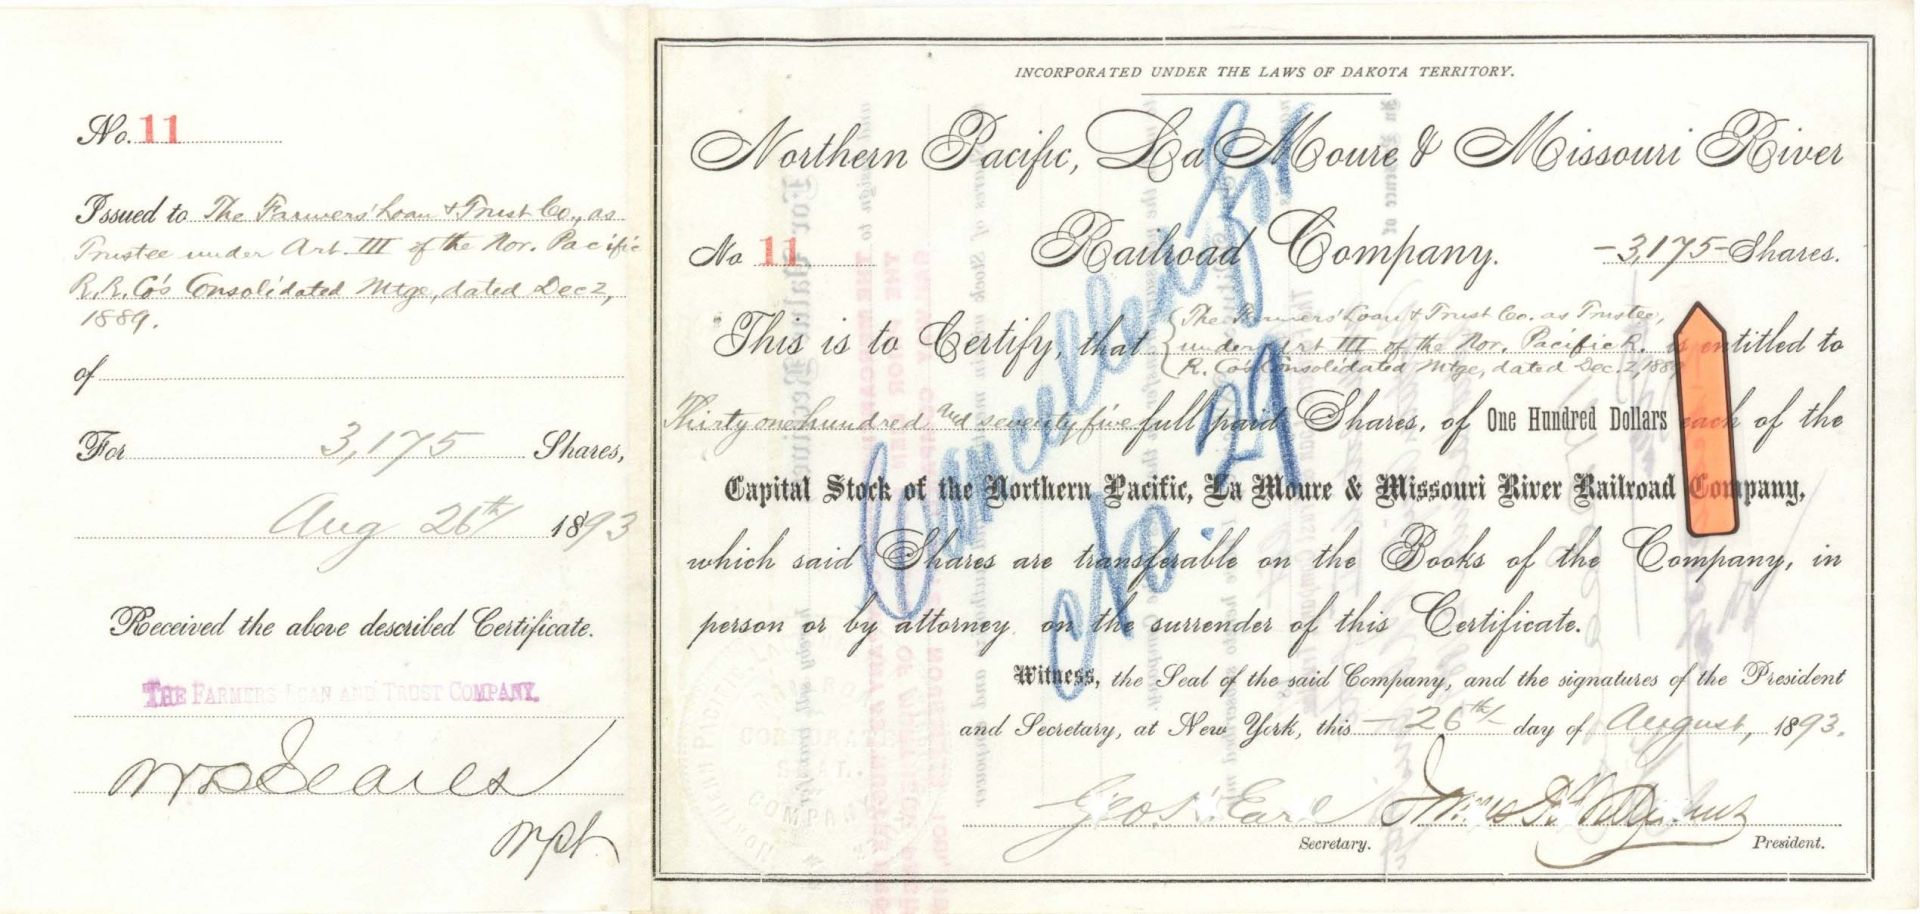 No. 11
Issued to The Farmers' Loan & Trust Co., as
Trustee under Art. III of the Nor. Pacific
R. R. Co's Consolidated Mtge, dated Dec 2,
1889.
of
For 3,175 Shares,
Aug 26th 1893
Received the above described Certificate.
THE FARMERS LOAN AND TRUST COMPANY.
INCORPORATED UNDER THE LAWS OF DAKOTA TERRITORY.
Northern Pacific, La Moure & Missouri River
No 11 Railroad Company. -3,175- Shares.
This is to Certify, that The Farmers' Loan & Trust Co. as Trustee,
under Art III of the Nor. Pacific R. is entitled to
R. Co's Consolidated Mtge, dated Dec. 2, 1889
Thirty one hundred and seventy five full paid Shares, of One Hundred Dollars each of the
Capital Stock of the Northern Pacific, La Moure & Missouri River Railroad Company,
which said Shares are transferable on the Books of the Company, in
person or by attorney on the surrender of this Certificate.
Witness, the Seal of the said Company, and the signatures of the President
and Secretary, at New York, this -26th- day of August, 1893.
Geo. Earl
Secretary. President.
Cancelled By
No. 29